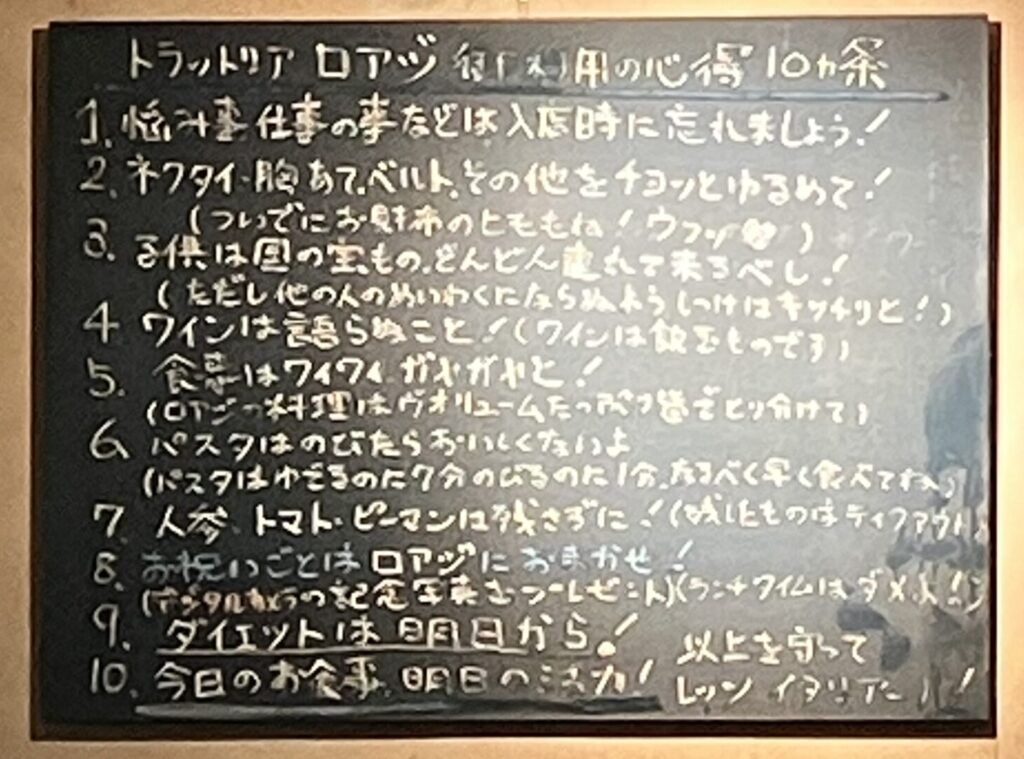 トラットリア ロアジ 御利用の心得 10ヵ条
1. 悩み事 仕事の事などは入店時に忘れましょう!
2. ネクタイ・胸あて、ベルト、その他をチョッとゆるめて!
(ついでにお財布のヒモもね! ウフッ )
3. 子供は国の宝もの、どんどん連れて来るべし!
(ただし他の人のめいわくにならぬようしつけはキッチリと!)
4 ワインは語らぬこと!(ワインは飲むものです)
5. 食事はワイワイ ガヤガヤと!
(ロアジの料理はヴォリュームたっぷり皆でとり分けて)
6 パスタはのびたらおいしくないよ
(パスタはゆでるのに7分のびるのに1分、なるべく早く食べてネ)
7 人参、トマト・ピーマンは残さずに!(残したものはテイクアウト)
8. お祝いごとはロアジにおまかせ!
(デジタルカメラの記念写真をプレゼント)(ランチタイムはダメよ!)
9. ダイエットは明日から!
10. 今日のお食事、明日の活力!
以上を守って
レッツ イタリアーノ!